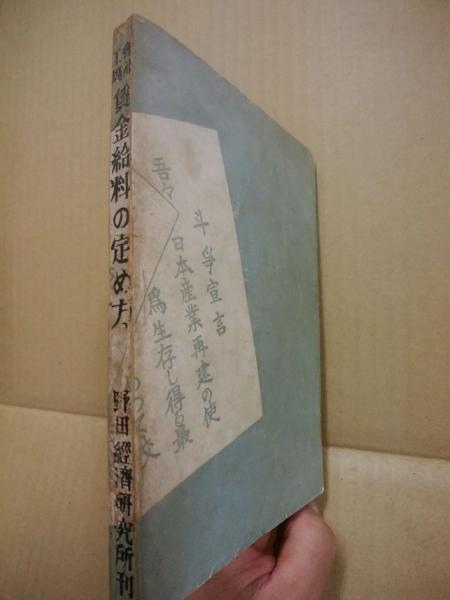 會社
工場
賃金給料の定め方
野田經濟研究所刊
斗爭宣言
日本産業再建の使
爲生存し得る最
吾々